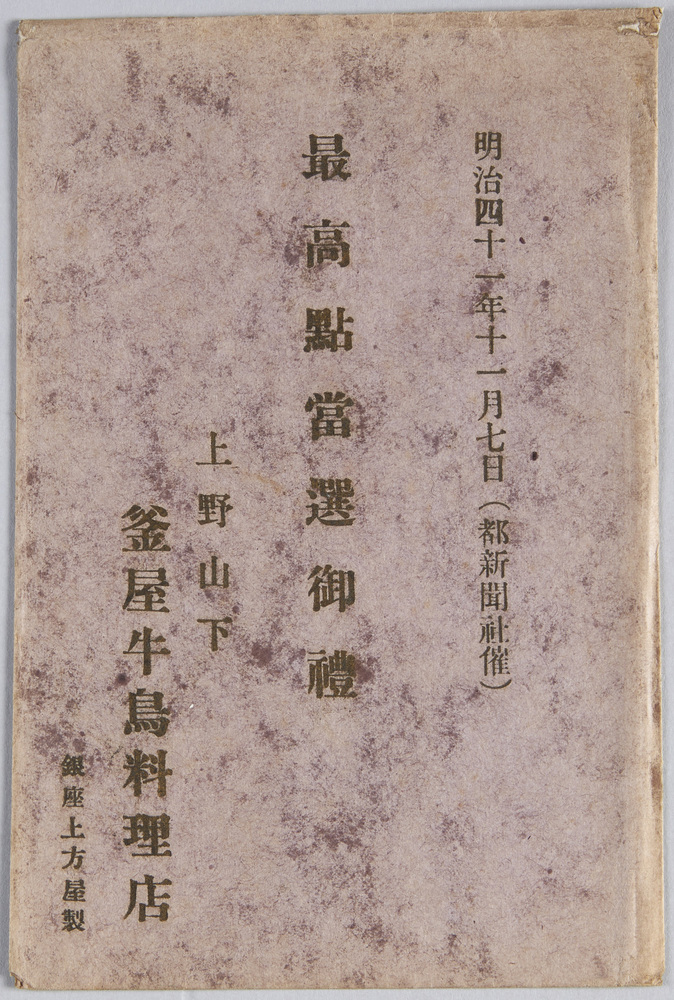 明治四十一年十一月七日（都新聞社催）
最高點當選御禮
上野山下
釜屋牛鳥料理店
銀座上方屋製